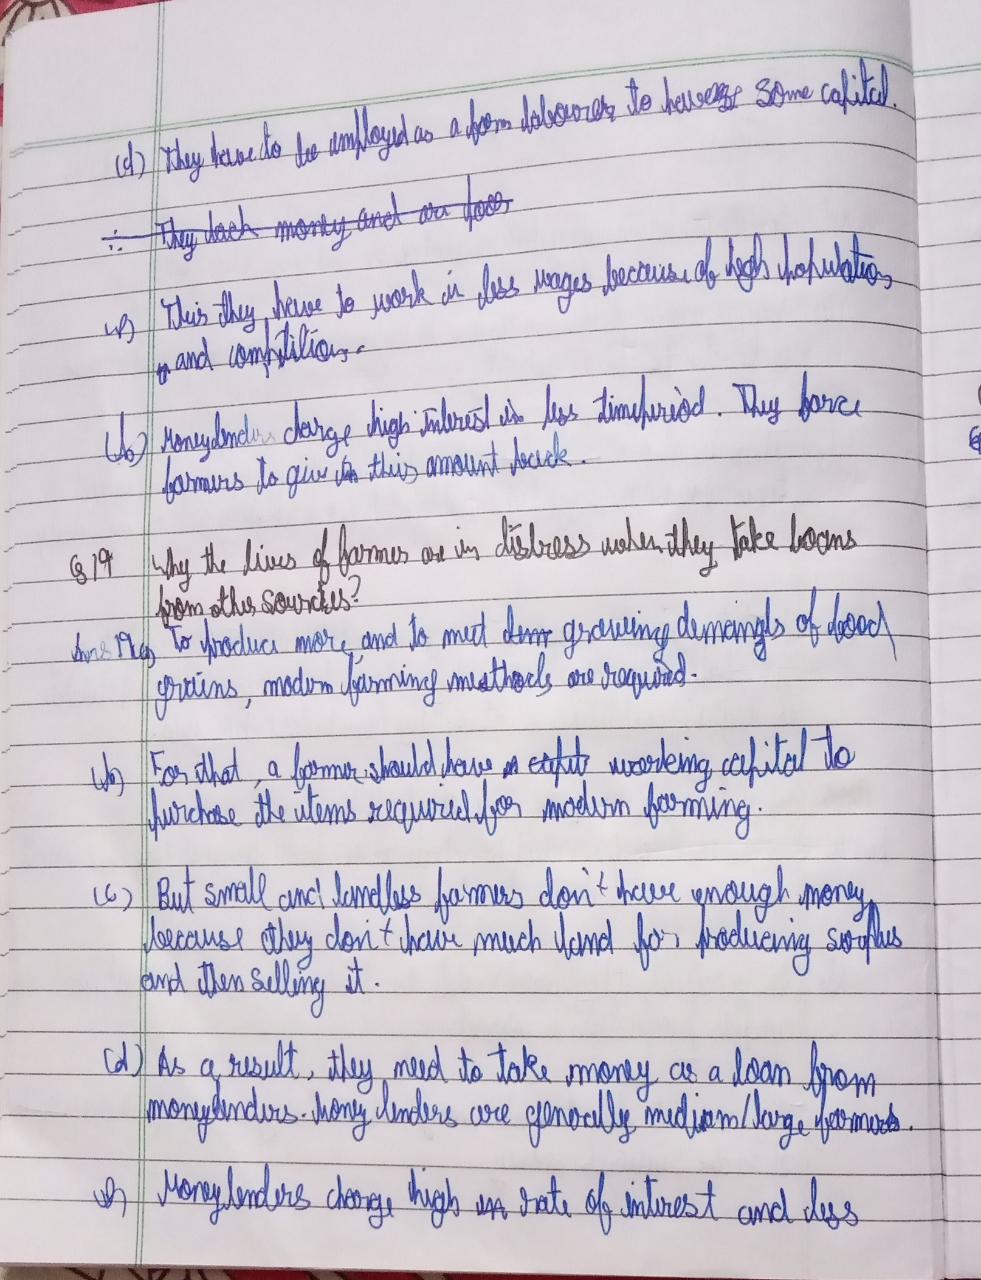 (d) They have to be employed as a farm labourer to have some capital.
∴ They lack money and are poor
(e) This they have to work in less wages because of high population
and compitition.
(b) Moneylenders charge high interest in less timeperiod. They force
farmers to give this amount back.
Q19 Why the lives of farmer are in distress when they take loans
from other sources?
Ans 19(a) To produce more, and to meet growing demands of food
grains, modern farming meathods are required.
(b) For that, a farmer should have working capital to
purchase the items required for modern farming.
(c) But small and landless farmers don't have enough money,
because they don't have much land for producing surplus
and then selling it.
(d) As a result, they need to take money as a loan from
moneylenders. Money lenders are generally medium/large farmers.
(e) Moneylenders charge high rate of interest and less